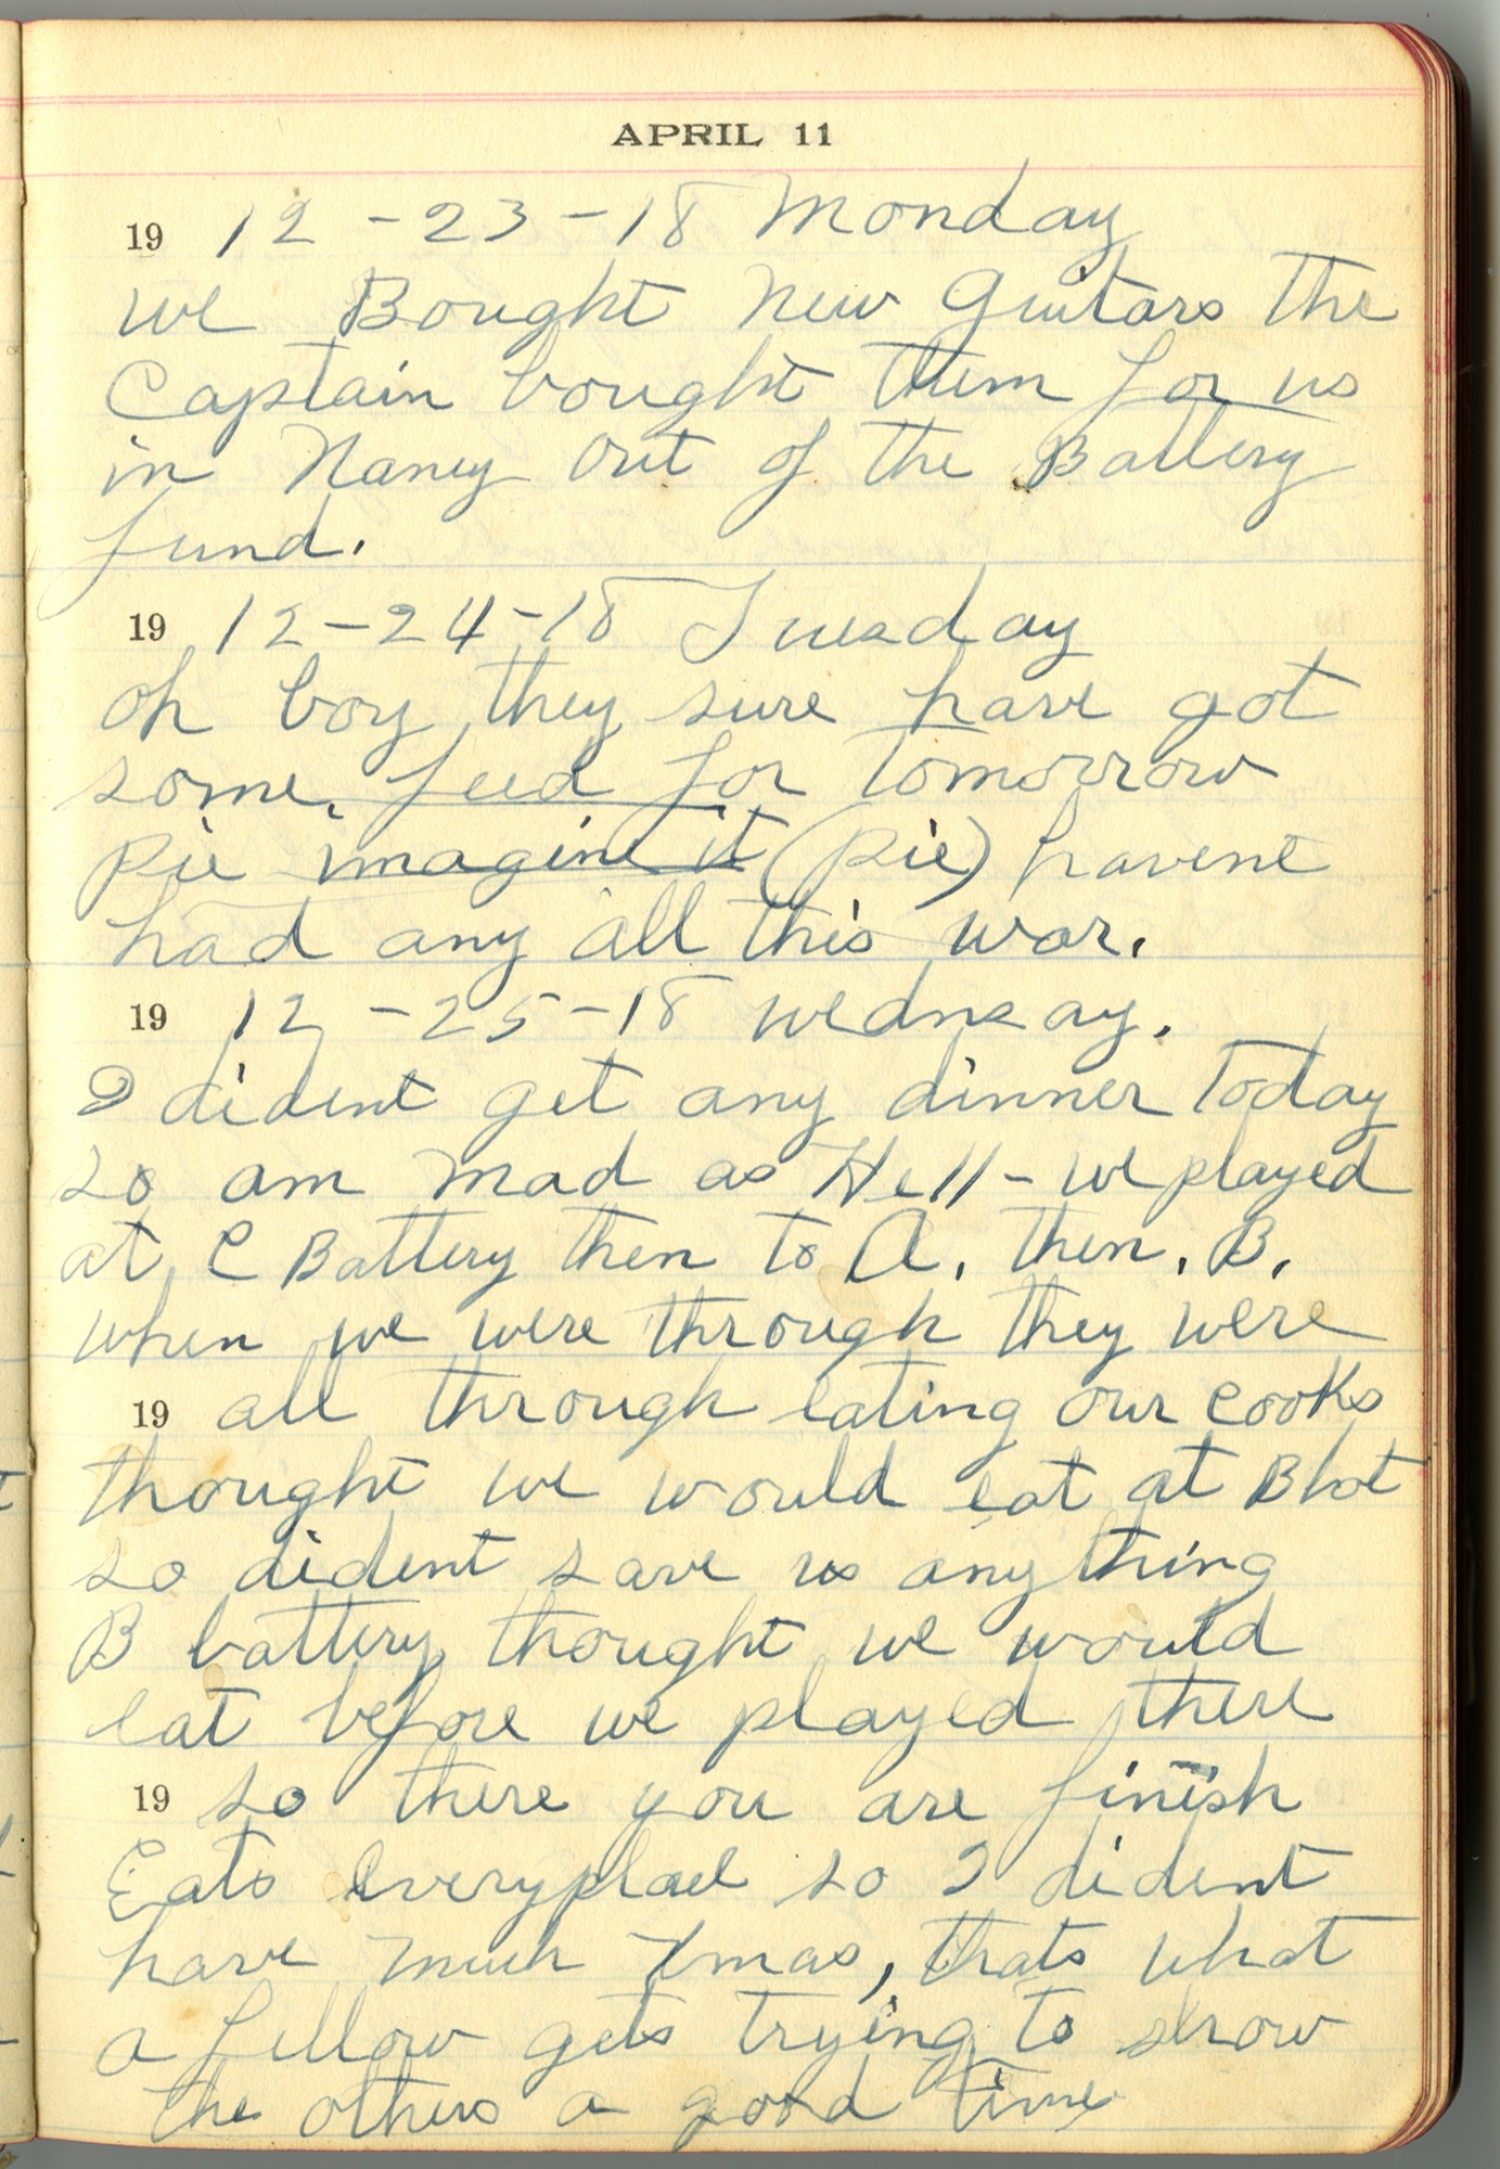 APRIL 11
19 12-23-18 Monday
we Bought New Guitars the
Captain bought them for us
in Nancy out of the Battery
fund.
19 12-24-18 Tuesday
oh boy they sure have got
some, feed for tomorrow
pie imagine it (pie) havent
had any all this war.
19 12-25-18 wednsay.
I dident get any dinner today
so am mad as Hell - we played
at C Battery then to A. then. B.
when we were through they were
19 all through eating our cooks
thought we would eat at B bat
so dident save us anything
B battery thought we would
eat before we played there
19 so there you are finish
Eats everyplace so I dident
have much Xmas, thats what
a fellow gets trying to show
the others a good time